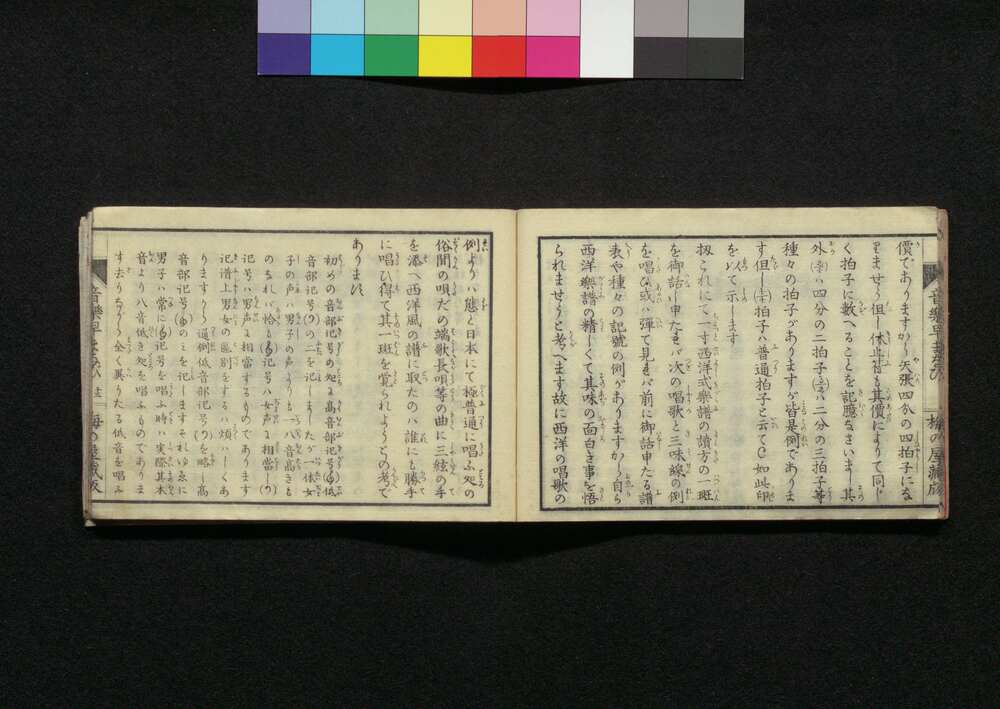 價でありますから矢張四分の四拍子にな
りませう但し休止符も其價によりて同じ
く拍子に數へることを記臆なさいまし其
外(3/4)ハ四分の二拍子(3/2)ハ二分の三拍子等
種々の拍子がありますが皆是例でありま
す但し(4/4)拍子ハ普通拍子と云てC如此印
を以て示します
扨これにて一寸西洋式樂譜の讀方の一斑
を御話し申たれバ次の唱歌と三味線の例
を唱ひ或ハ彈て見れバ前に御話申たる譜
表や種々の記號の例がありますから自ら
西洋樂譜の精しくて其味の面白き事を悟
られませうと考へます故に西洋の唱歌の
音樂早まなび
梅の屋藏版
例よりハ態と日本にて極普通に唱ふ処の
俗間の唄だの端歌長唄等の曲に三絃の手
を添へ西洋風の譜に取たのハ誰にも勝手
に唱ひ得て其一斑を覚られようとの考で
あります
初めの音部記号の処に高音部記号()低
音部記号()の二を記しましたが一体女
子の声ハ男子の声よりも一八音高きも
のなれバ恰も()記号ハ女声に相當し()
記号ハ男声に相當するものであります
記譜上男女の區別をするハ煩ハしくあ
りますから通例低音部記号()を略し高
音部記号()のミを記しますそれゆゑに
男子ハ常に()記号を唱ふ時ハ実際其本
音より八音低き処を唱ふものでありま
す去りながら全く異りたる低音を唱ふ
音樂早まなび
梅の屋藏版